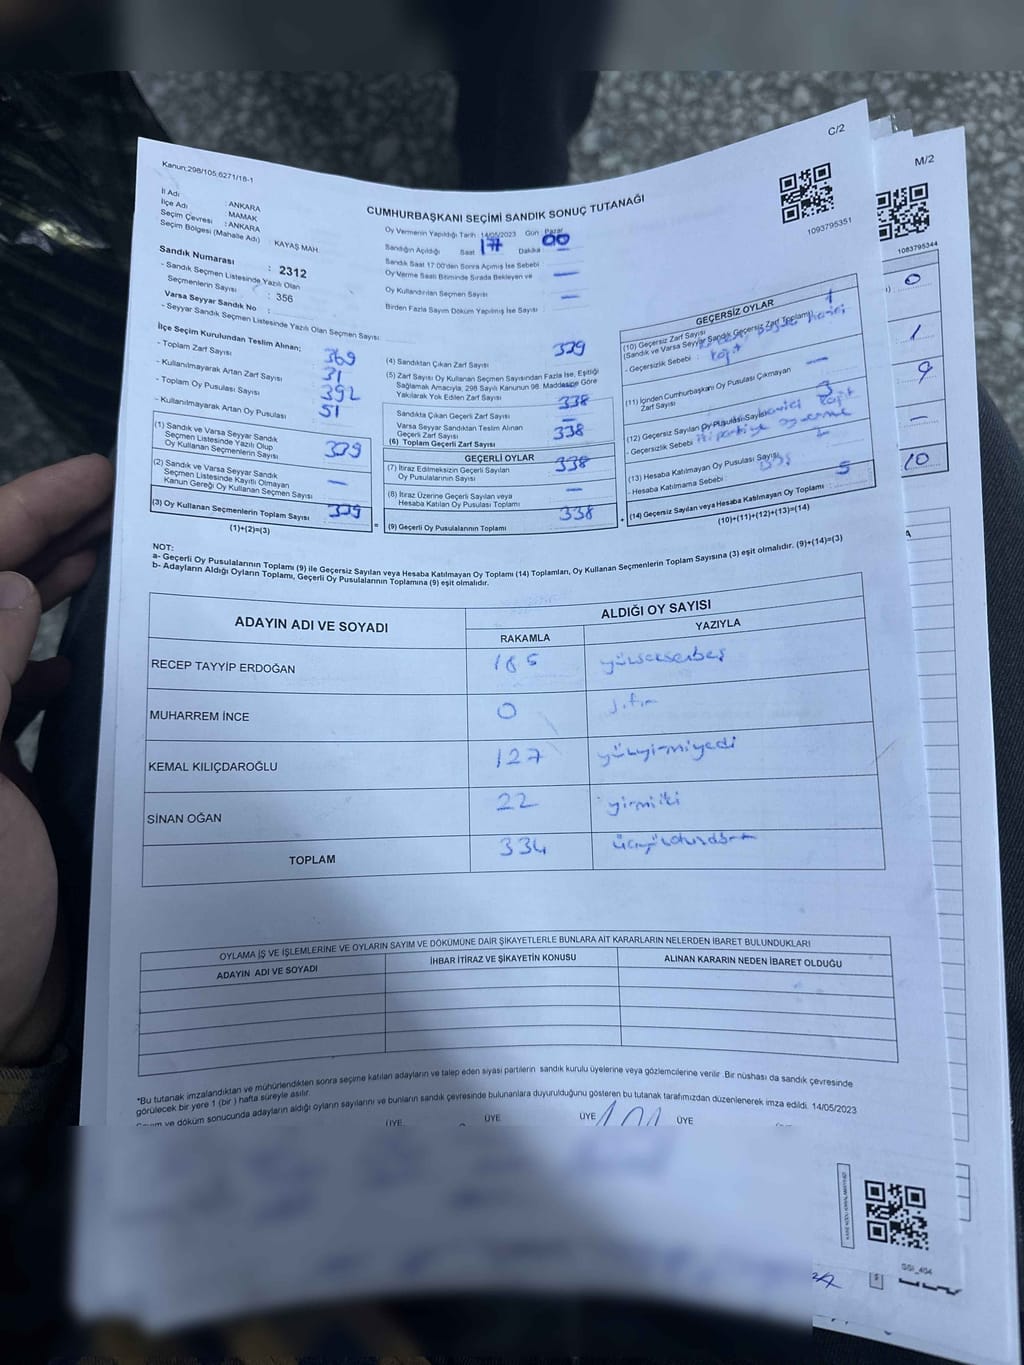 C/2
M/2
Kanun:298/105;6271/18-1
1093795351
1083795344
CUMHURBAŞKANI SEÇİMİ SANDIK SONUÇ TUTANAĞI
İl Adı : ANKARA
İlçe Adı : MAMAK
Seçim Çevresi : ANKARA
Seçim Bölgesi (Mahalle Adı) : KAYAŞ MAH.
Sandık Numarası : 2312
- Sandık Seçmen Listesinde Yazılı Olan
Seçmenlerin Sayısı : 356
Varsa Seyyar Sandık No :
- Seyyar Sandık Seçmen Listesinde Yazılı Olan Seçmen Sayısı:
Oy Vermenin Yapıldığı Tarih 14/05/2023 Gün Pazar
Sandığın Açıldığı Saat 17 Dakika 00
Sandık Saat 17.00'den Sonra Açımış İse Sebebi
Oy Verme Saati Bitiminde Sırada Bekleyen ve —
Oy Kullandırılan Seçmen Sayısı —
Birden Fazla Sayım Döküm Yapılmış İse Sayısı
İlçe Seçim Kurulundan Teslim Alınan;
- Toplam Zarf Sayısı 369
- Kullanılmayarak Artan Zarf Sayısı 31
- Toplam Oy Pusulası Sayısı 392
- Kullanılmayarak Artan Oy Pusulası 51
(1) Sandık ve Varsa Seyyar Sandık
Seçmen Listesinde Yazılı Olup
Oy Kullanan Seçmenlerin Sayısı 339
(2) Sandık ve Varsa Seyyar Sandık
Seçmen Listesinde Kayıtlı Olmayan
Kanun Gereği Oy Kullanan Seçmen Sayısı —
(3) Oy Kullanan Seçmenlerin Toplam Sayısı 339
(1)+(2)=(3)
(4) Sandıktan Çıkan Zarf Sayısı 339
(5) Zarf Sayısı Oy Kullanan Seçmen Sayısından Fazla İse, Eşitliği
Sağlamak Amacıyla; 298 Sayılı Kanunun 98. Maddesine Göre
Yakılarak Yok Edilen Zarf Sayısı
Sandıkta Çıkan Geçerli Zarf Sayısı 338
Varsa Seyyar Sandıktan Teslim Alınan
Geçerli Zarf Sayısı —
(6) Toplam Geçerli Zarf Sayısı 338
GEÇERLİ OYLAR
(7) İtiraz Edilmeksizin Geçerli Sayılan
Oy Pusulalarının Sayısı 338
(8) İtiraz Üzerine Geçerli Sayılan veya
Hesaba Katılan Oy Pusulası Toplamı —
(9) Geçerli Oy Pusulalarının Toplamı 338
GEÇERSİZ OYLAR
(10) Geçersiz Zarf Sayısı 1
(Sandık ve Varsa Seyyar Sandık Geçersiz Zarf Toplamı)
- Geçersizlik Sebebi :
(11) İçinden Cumhurbaşkanı Oy Pusulası Çıkmayan
Zarf Sayısı —
(12) Geçersiz Sayılan Oy Pusulası Sayısı 3
- Geçersizlik Sebebi
(13) Hesaba Katılmayan Oy Pusulası Sayısı
- Hesaba Katılmama Sebebi
(14) Geçersiz Sayılan veya Hesaba Katılmayan Oy Toplamı : 5
(10)+(11)+(12)+(13)=(14)
0
1
9
—
10
NOT:
a- Geçerli Oy Pusulalarının Toplamı (9) ile Geçersiz Sayılan veya Hesaba Katılmayan Oy Toplamı (14) Toplamları, Oy Kullanan Seçmenlerin Toplam Sayısına (3) eşit olmalıdır. (9)+(14)=(3)
b- Adayların Aldığı Oyların Toplamı, Geçerli Oy Pusulalarının Toplamına (9) eşit olmalıdır.
ADAYIN ADI VE SOYADI ALDIĞI OY SAYISI
RAKAMLA YAZIYLA
RECEP TAYYİP ERDOĞAN 185 yüzseksenbeş
MUHARREM İNCE 0 sıfır
KEMAL KILIÇDAROĞLU 127 yüzyirmiyedi
SİNAN OĞAN 22 yirmiiki
TOPLAM 334 üçyüzotuzdört
OYLAMA İŞ VE İŞLEMLERİNE VE OYLARIN SAYIM VE DÖKÜMÜNE DAİR ŞİKAYETLERLE BUNLARA AİT KARARLARIN NELERDEN İBARET BULUNDUKLARI
ADAYIN ADI VE SOYADI İHBAR İTİRAZ VE ŞİKAYETİN KONUSU ALINAN KARARIN NEDEN İBARET OLDUĞU
*Bu tutanak imzalandıktan ve mühürlendikten sonra seçime katılan adayların ve talep eden siyasi partilerin sandık kurulu üyelerine veya gözlemcilerine verilir. Bir nüshası da sandık çevresinde
görülecek bir yere 1 (bir) hafta süreyle asılır.
Sayım ve döküm sonucunda adayların aldığı oyların sayılarını ve bunların sandık çevresinde bulunanlara duyurulduğunu gösteren bu tutanak tarafımızdan düzenlenerek imza edildi. 14/05/2023
ÜYE ÜYE ÜYE ÜYE